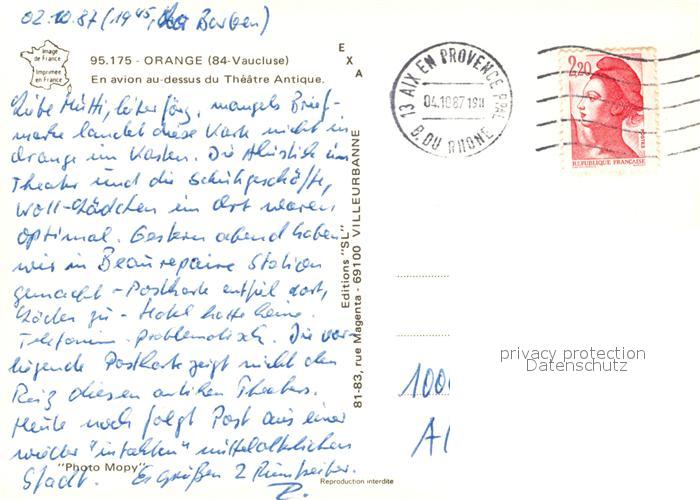 02.10.87 (1945, Barben)
Image de France
Imprimée en France
95.175 - ORANGE (84-Vaucluse)
En avion au-dessus du Théâtre Antique.
E X A
Liebe Mutti, lieber Jörg, mangels Brief-
marke landet diese Karte nicht in
Orange im Kasten. Die Akustik im
Theater und die Schuhgeschäfte,
Woll-Lädchen im Ort waren
optimal. Gestern abend haben
wir in Beaurepaire Station
gemacht - Postkarte entfiel dort,
Läden zu - Hotel hatte keine.
Telefonieren problematisch. Die vor-
liegende Postkarte zeigt nicht den
Reiz dieses antiken Theaters.
Heute noch folgt Post aus einer
wieder "intakten" mittelalterlichen
Stadt. Es grüßen 2
"Photo Mopy"
Reproduction interdite
Editions "SL"
81-83, rue Magenta - 69100 VILLEURBANNE
13 AIX EN PROVENCE PPAL
04.10.87 19H
B. DU RHONE
2,20
FRANCE
REPUBLIQUE FRANÇAISE
privacy protection
Datenschutz
100
A